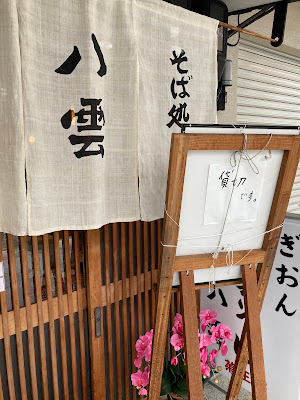 そば処
八雲
貸切
です。
ぎおん